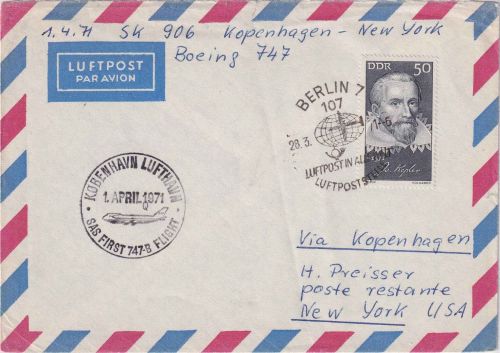 1.4.71 SK 906 Kopenhagen - New York
Boeing 747
LUFTPOST
PAR AVION
DDR 50
BERLIN 7
107
28.3.
LUFTPOST IN AL
LUFTPOSTST
J. Kepler
KØBENHAVN LUFTHAVN
1. APRIL 1971
SAS FIRST 747-B FLIGHT
Via Kopenhagen
H. Preisser
poste restante
New York USA